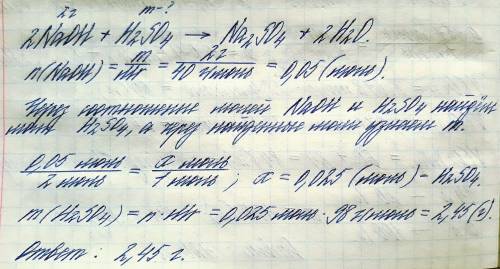 2г m-?
2NaOH + H₂SO₄ → Na₂SO₄ + 2H₂O.
n(NaOH) = m/Mr = 2г/40 г/моль = 0,05 (моль).
Через соотношение молей NaOH и H₂SO₄ найдём
моли H₂SO₄, а через найденные моли узнаем m.
0,05 моль/2 моль = x моль/1 моль ; x = 0,025 (моль) - H₂SO₄.
m(H₂SO₄) = n · Mr = 0,025 моль · 98 г/моль = 2,45 (г).
Ответ: 2,45 г.